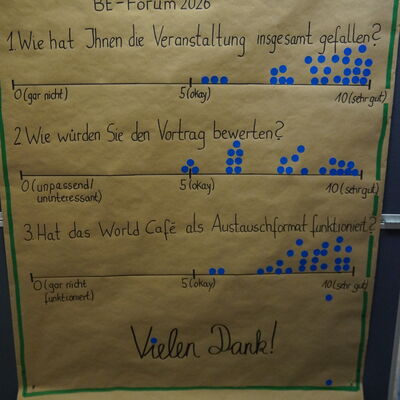 BE-Forum 2026
1. Wie hat Ihnen die Veranstaltung insgesamt gefallen?
0 (gar nicht) 5 (okay) 10 (sehr gut)
2. Wie würden Sie den Vortrag bewerten?
0 (unpassend/ 5 (okay) 10 (sehr gut)
uninteressant)
3. Hat das World Café als Austauschformat funktioniert?
0 (gar nicht 5 (okay) 10 (sehr gut)
funktioniert)
Vielen Dank!